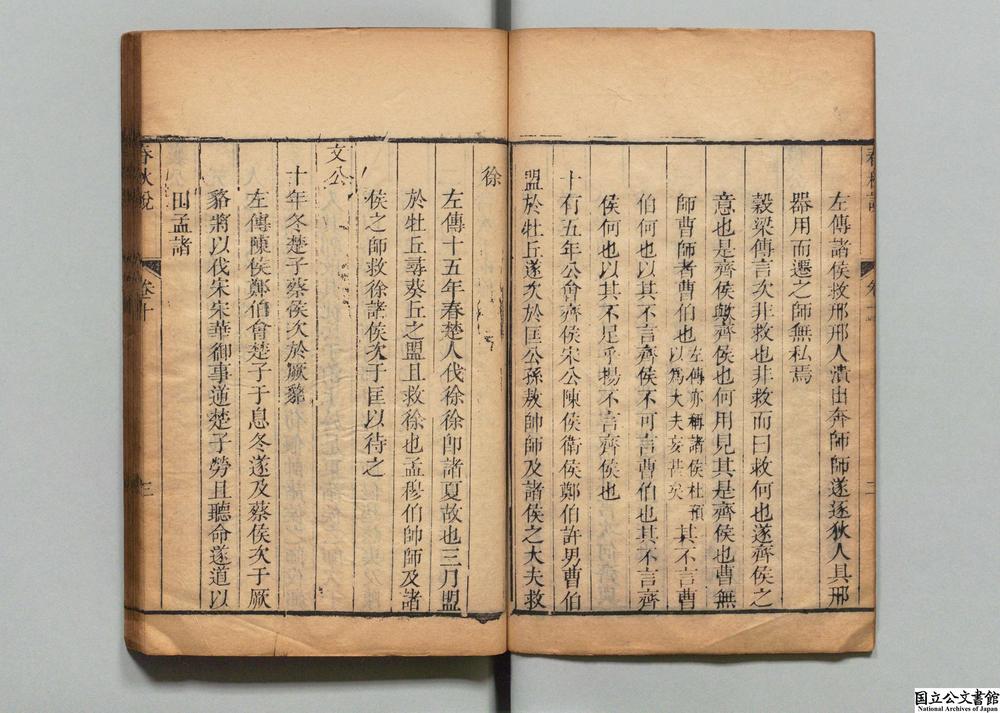 左傳諸侯救邢邢人潰出奔師師遂逐狄人具邢
器用而遷之師無私焉
穀梁傳言次非救也非救而曰救何也遂齊侯之
意也是齊侯歟齊侯也何用見其是齊侯也曹無
師曹師者曹伯也左傳亦稱諸侯杜預以為大夫妄甚矣其不言曹
伯何也以其不言齊侯不可言曹伯也其不言齊
侯何也以其不足乎揚不言齊侯也
十有五年公會齊侯宋公陳侯衛侯鄭伯許男曹伯
盟於牡丘遂次於匡公孫敖帥師及諸侯之大夫救
徐
左傳十五年春楚人伐徐徐即諸夏故也三月盟
於牡丘尋葵丘之盟且救徐也孟穆伯帥師及諸
侯之師救徐諸侯次于匡以待之
文公
十年冬楚子蔡侯次於厥貉
左傳陳侯鄭伯會楚子于息冬遂及蔡侯次于厥
貉將以伐宋宋華御事逆楚子勞且聽命遂道以
田孟諸
春秋說 卷十 三
国立公文書館
National Archives of Japan